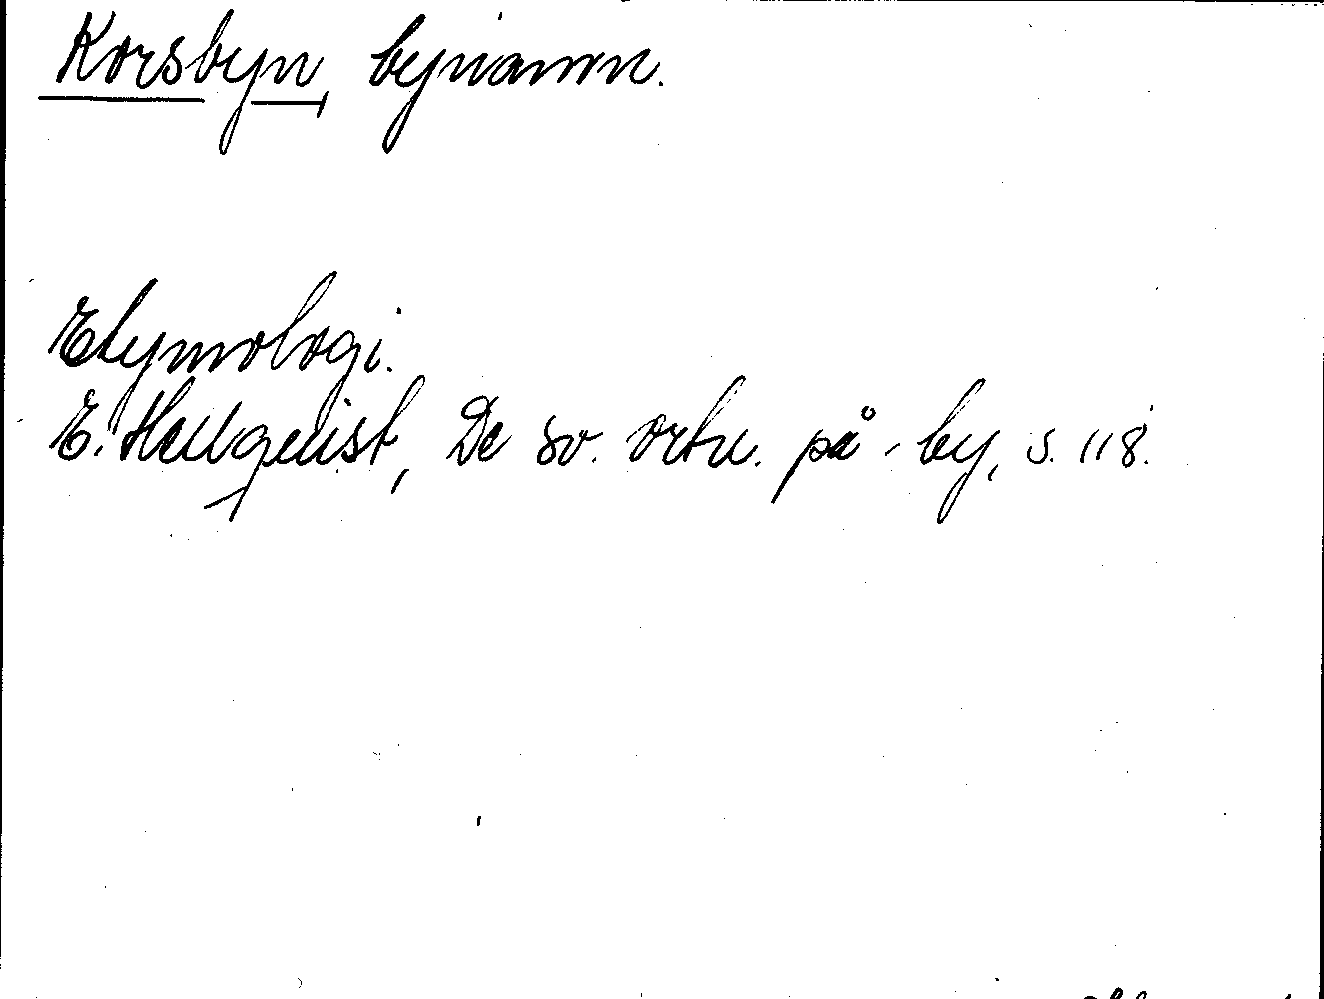 Korsbyn, bynamn.
Etymologi.
E. Hellquist, De sv. ortn. på -by, s. 118.